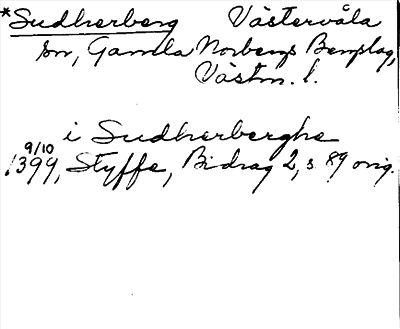 *Sudherberg Västervåla
sn, Gamla Norbergs Bergslag,
Västm. l.
i Sudherberghe
9/10
1399, Styffe, Bidrag 2, s. 89 orig.